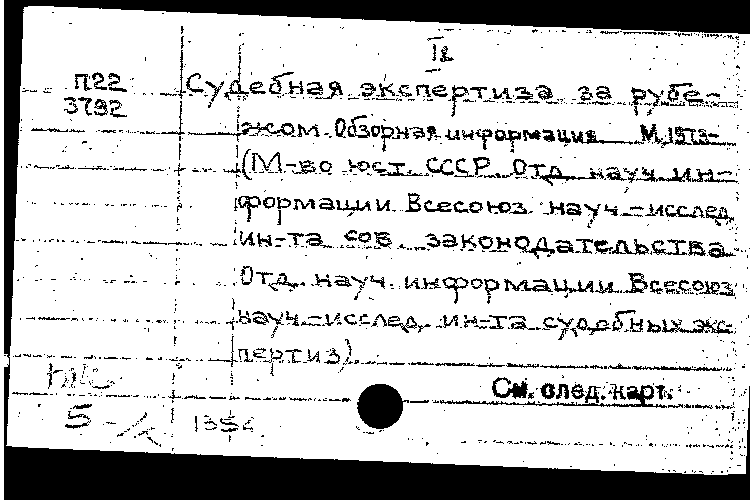 П22
3792
Судебная экспертиза за рубе-
жом. Обзорная информация. М., 1973-
(М-во юст. СССР. Отд. науч. ин-
формации Всесоюз. науч.-исслед.
ин-та сов. законодательства.
Отд. науч. информации Всесоюз.
науч.-исслед. ин-та судебных экс-
пертиз).
См. след. карт.
5